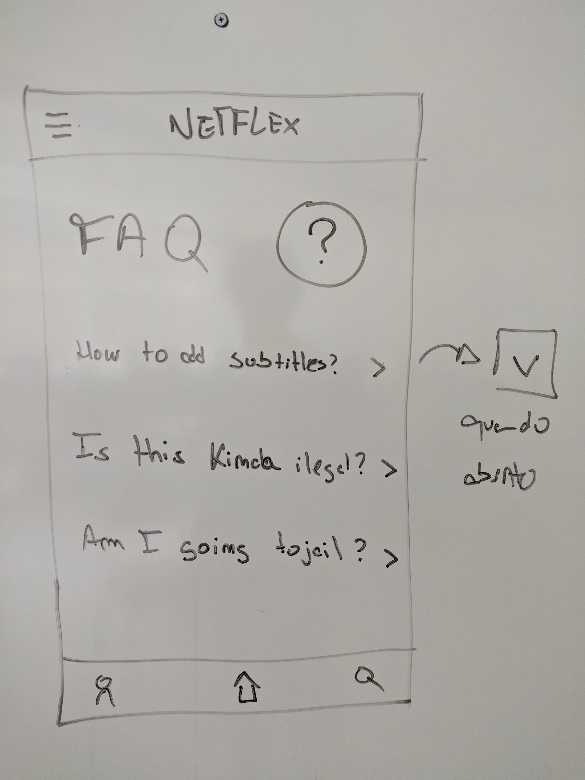 NETFLEX
FAQ ?
How to add subtitles? >
Is this Kinda ilegal? >
Am I going to jail? >
V
quando
aberto